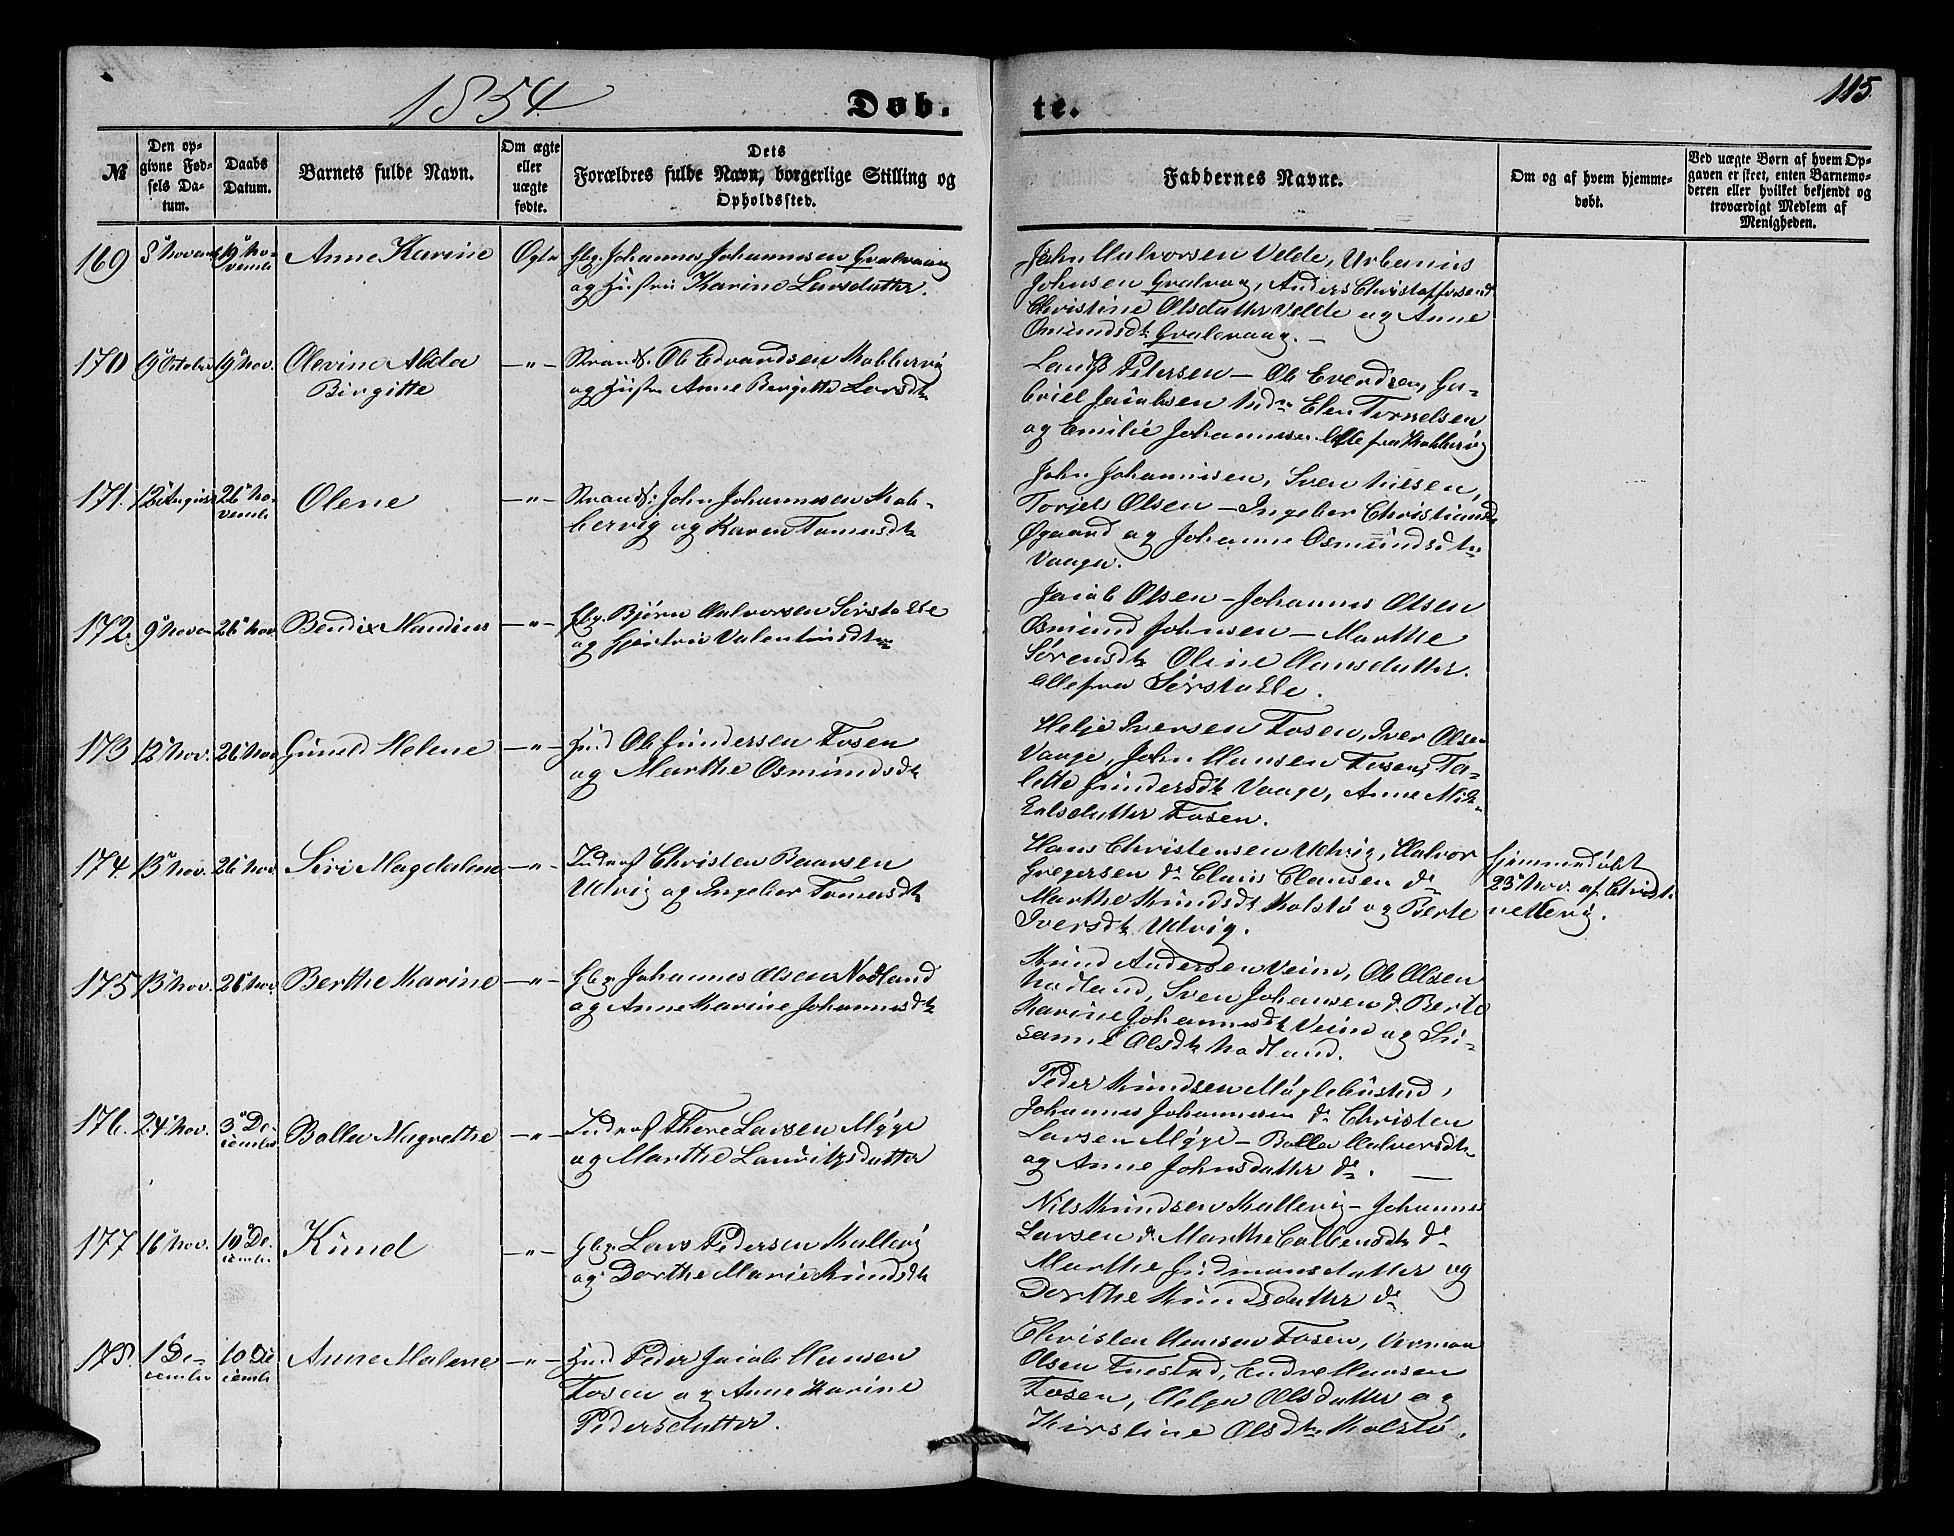 1854
Døb-
te.
115
№
Den op-
givne Fød-
sels Da-
tum.
Daabs
Datum.
Barnets fulde Navn.
Om ægte
eller
uægte
fødte.
Dets
Forældres fulde Navn, borgerlige Stilling og
Opholdssted.
Faddernes Navne.
Om og af hvem hjemme-
døbt.
Ved uægte Børn af hvem Op-
gaven er skeet, enten Barnemo-
deren eller hvilket bekjendt og
troværdigt Medlem af
Menigheden.
169
19 No-
vemb
Anne Karine
Johannes Johannesen Gralevaag
og Hustru Karine Larsdatter.
John Halvorsen Velde, Urbanius
Johnsen Gralvag, Anders Christoffersen
Christine Olsdatter Velde og Anne
Omundsdt Gralevaag.
170
19 Nov.
Olevine Alida
Birgitte
-"-
Strands. Ole Edvardsen Kobbervig
og Hustru Anne Birgitte Larsdt
Petersen - Ole Evendsen, Ga-
briel Jacobsen
og Emilie Johannesen Alle fra Kobbervig
171.
12 August
26 No-
vemb
Olene
-"-
Strands: John Johannesen Kob-
bervig og Karen Tomasdt
John Johannesen, Sven Nilsen,
Torjels Olsen - Ingeber Christiansdt
Øgaard og Johanne Osmundsdtr
Vaage.
172.
9 Novem
26 Nov
Bendix Mandius
-"-
Gbr. Bjørn Halvorsen Sørstabbe
og Valentinsdtr
Jacob Olsen - Johannes Olsen
Osmund Johnsen - Marthe
Sørensdt Oline Hansdatter.
Alle fra Sørstabbe.
173
12 Nov.
26 Nov
Guneld Helene
-"-
Hmd Ole Gundersen Fosen
og Marthe Osmundsdt
Helje Iversen Fosen, Iver Olsen
Vaage, John Hansen Fosen, Ta-
lette Gundersdt Vaage, Anne Mik-
kalsdatter Fosen.
174.
13 Nov.
26 Nov.
Siri Magdalene
-"-
Inderst Christen Baarsen
Udvig og Ingeber Tomasdt
Hans Christensen Udvig, Halvor
Gregersen do Claus Clausen do
Marthe Knudsdt Kolstø og Berte
Iversdt Udvig.
Hjemmedøbt
23 Nov. af Christi-
175
13 Nov.
26 Nov.
Berthe Karine
-"-
Gbr. Johannes Olsen Nodland
og Anne Karine Johannesdt
Knud Andersen Veim, Ole Olsen
Nodland, Sven Johansen do Berte
Karine Johannesdt Veim og Su-
sanne Olsdt Nodland.
176.
24 Nov.
3 De-
cember
Bolla Magrethe
-"-
Inderst There Larsen Myge
og Marthe Lauritzsdatter
Peder Knudsen Møglebusted,
Johannes Johannesen do Christen
Larsen Myge - Bolla Halversdt
og Anne Johnsdatter do.
177
16 Nov.
10 De-
cember
Knud
-"-
Gbr. Lars Pedersen Kallevig
og Dorthe Marie Knudsdt
Nils Knudsen Kallevig - Johannes
Larsen do Marthe Colbensdt do
Marthe Gudmansdatter og
Dorthe Knudsdatter do
178.
1 De-
cember
10 De
cemb
Anne Malene
-"-
Hmd Peder Jacob Hansen
Fosen og Anne Karine
Pedersdatter.
Christen Hansen Fosen, Verman
Olsen Fuestad, Endre Hansen
Fosen, Helga Olsdatter og
Kirstine Olsdt Kolstø.